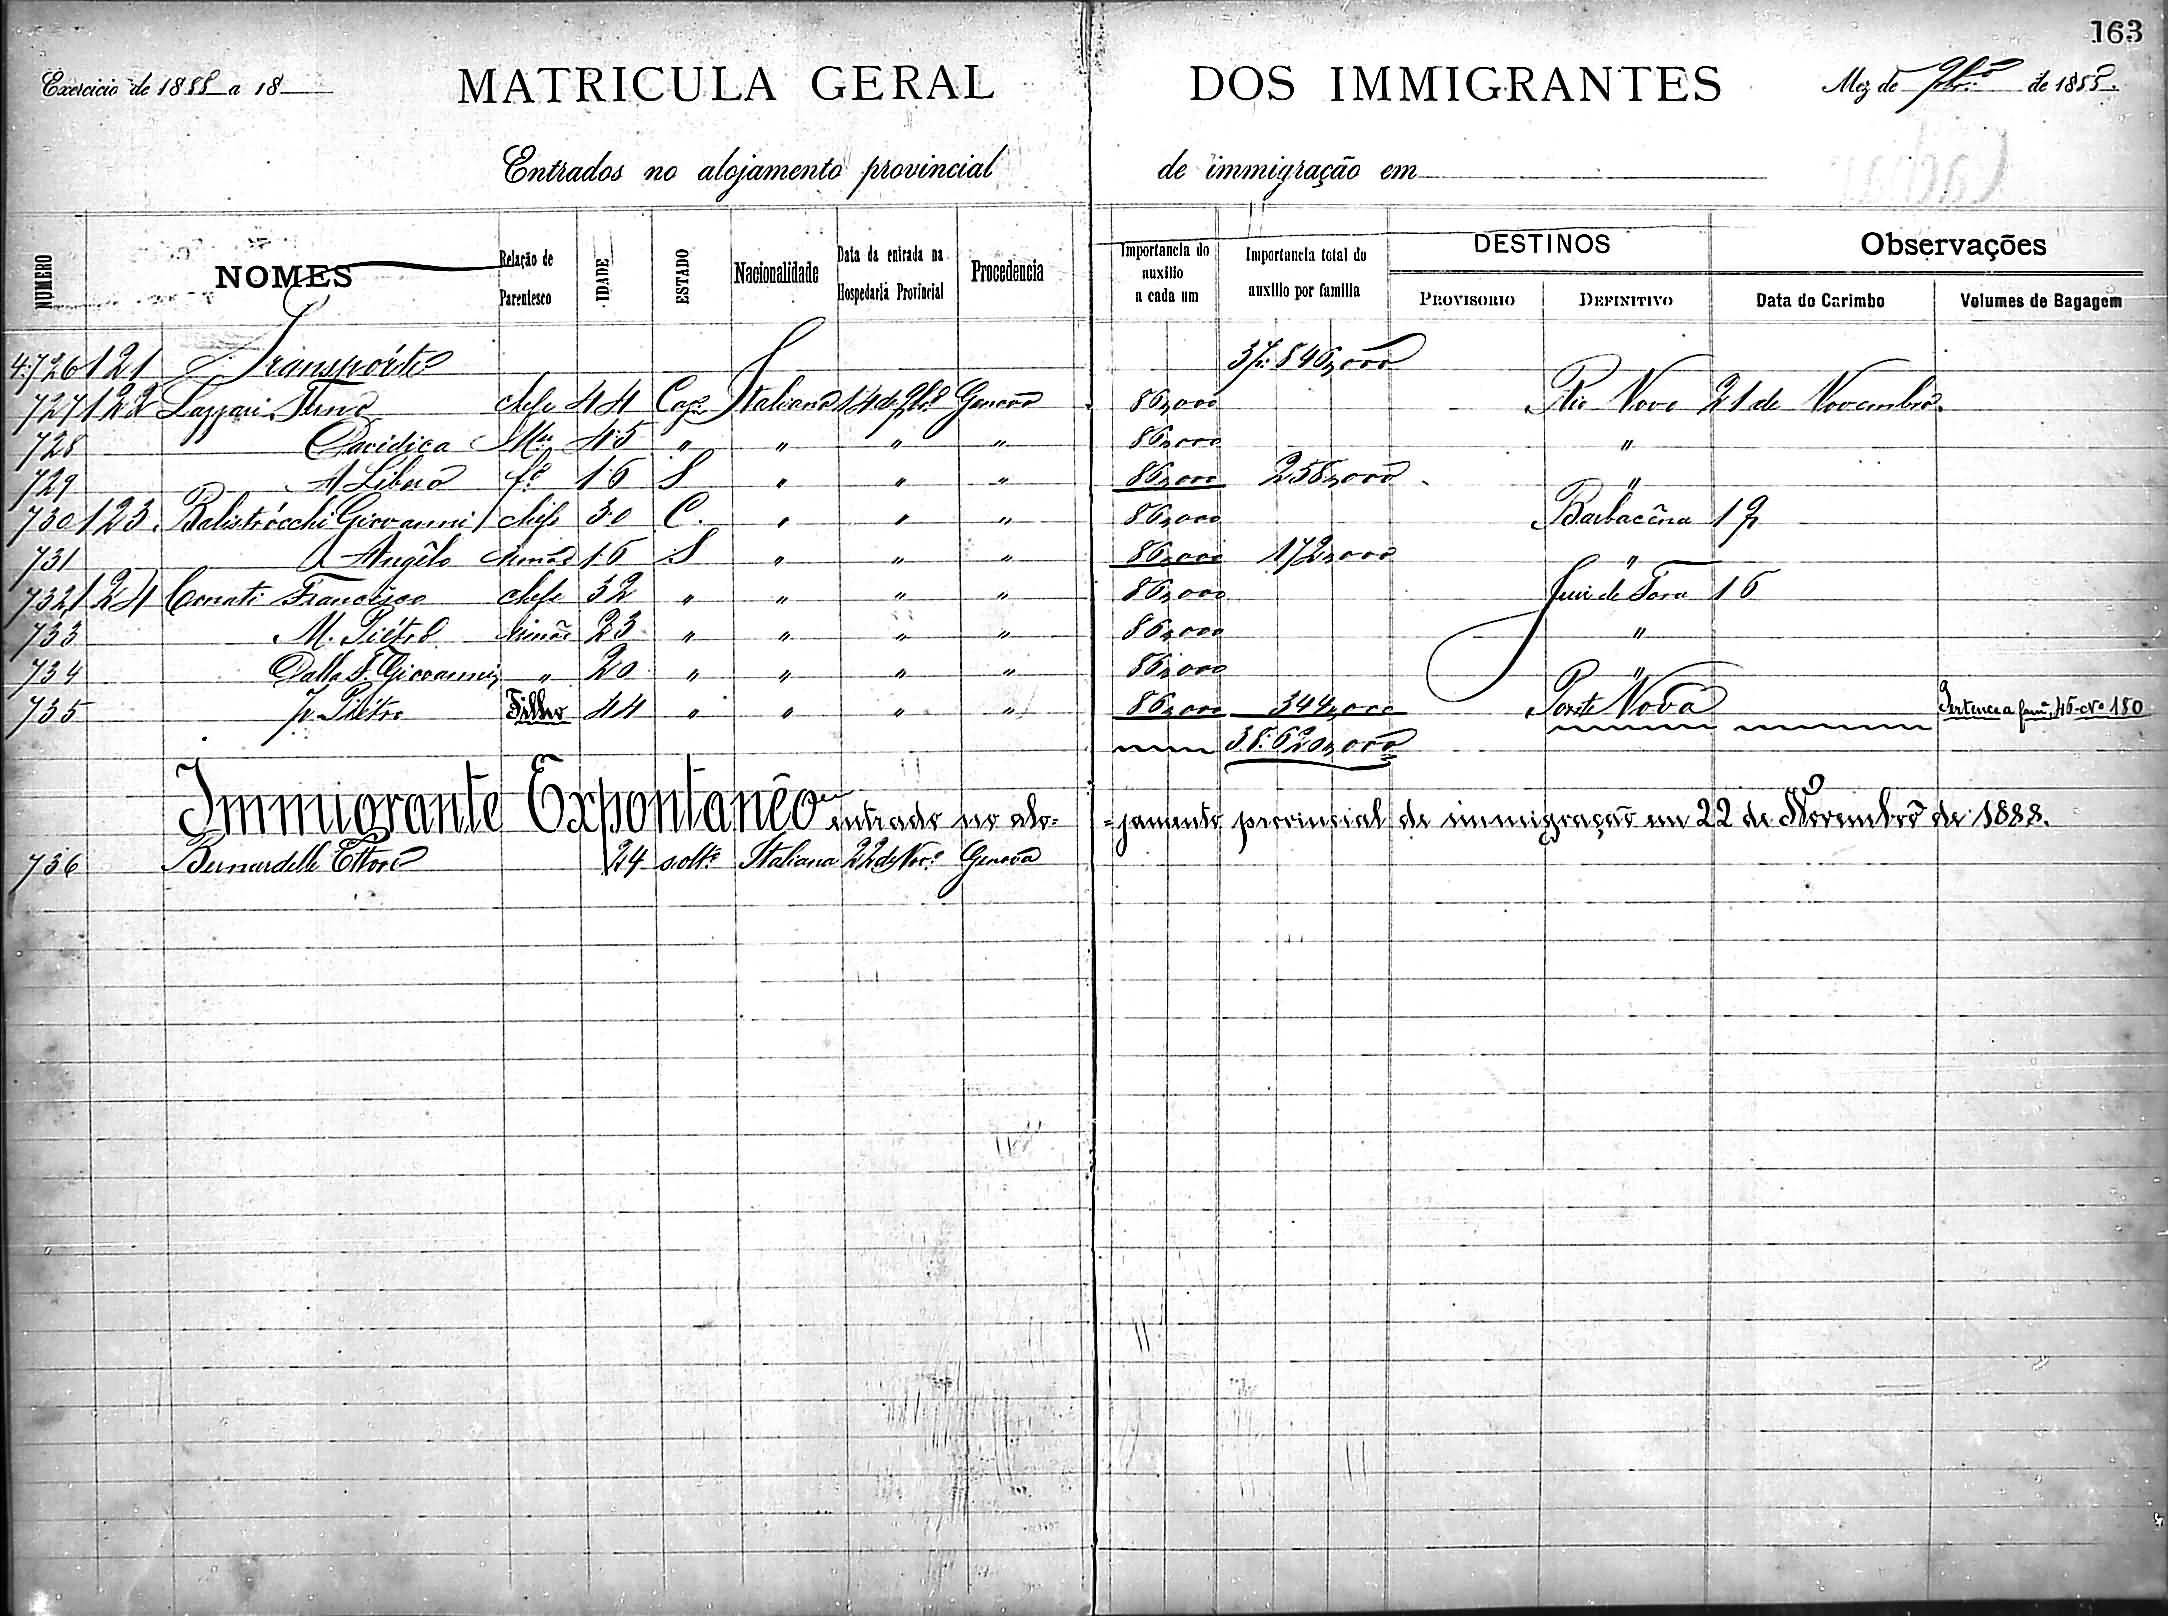 163
Exercicio de 1888 a 18
MATRICULA GERAL DOS IMMIGRANTES
Mez de 9bro de 1888.
Entrados no alojamento provincial de immigração em
NUMERO NOMES Relação de Parentesco IDADE ESTADO Nacionalidade Data da entrada na Hospedaria Provincial Procedencia Importancia do auxilio a cada um Importancia total do auxilio por familia DESTINOS PROVISORIO DEFINITIVO Observações Data do Carimbo Volumes de Bagagem
4:726 121 Transporte 37:846,000
727 122 Lazzari chefe 44 Cazo Italiana 14 de 9bro Genova 86,000 Rio Novo 21 de Novembro
728 Davidica Mer 45 " " " " 86,000 "
729 A Libera fo 16 S " " " 86,000 258,000 "
730 123 Balistrócchi Giovanni chefe 30 C. " " " 86,000 Barbacêna 19
731 Angêlo Irmão 16 S " " " 86,000 172,000 "
732 124 Conati Francisco chefe 32 " " " " 86,000 Juiz de Fora 16
733 M. Piétro Irmão 23 " " " " 86,000 "
734 Dalla F. Giovanni " 20 " " " " 86,000 "
735 Piétro Filho 44 " " " " 86,000 344,000 Ponte Nova Pertence a fama 46 No 180
38:620,000
Immigrante Expontanêo entrado no alo=
=jamento provincial de immigração em 22 de Novembro de 1888.
736 Bernardelle Ettore 24 solto Italiana 22 de Nov.o Genova